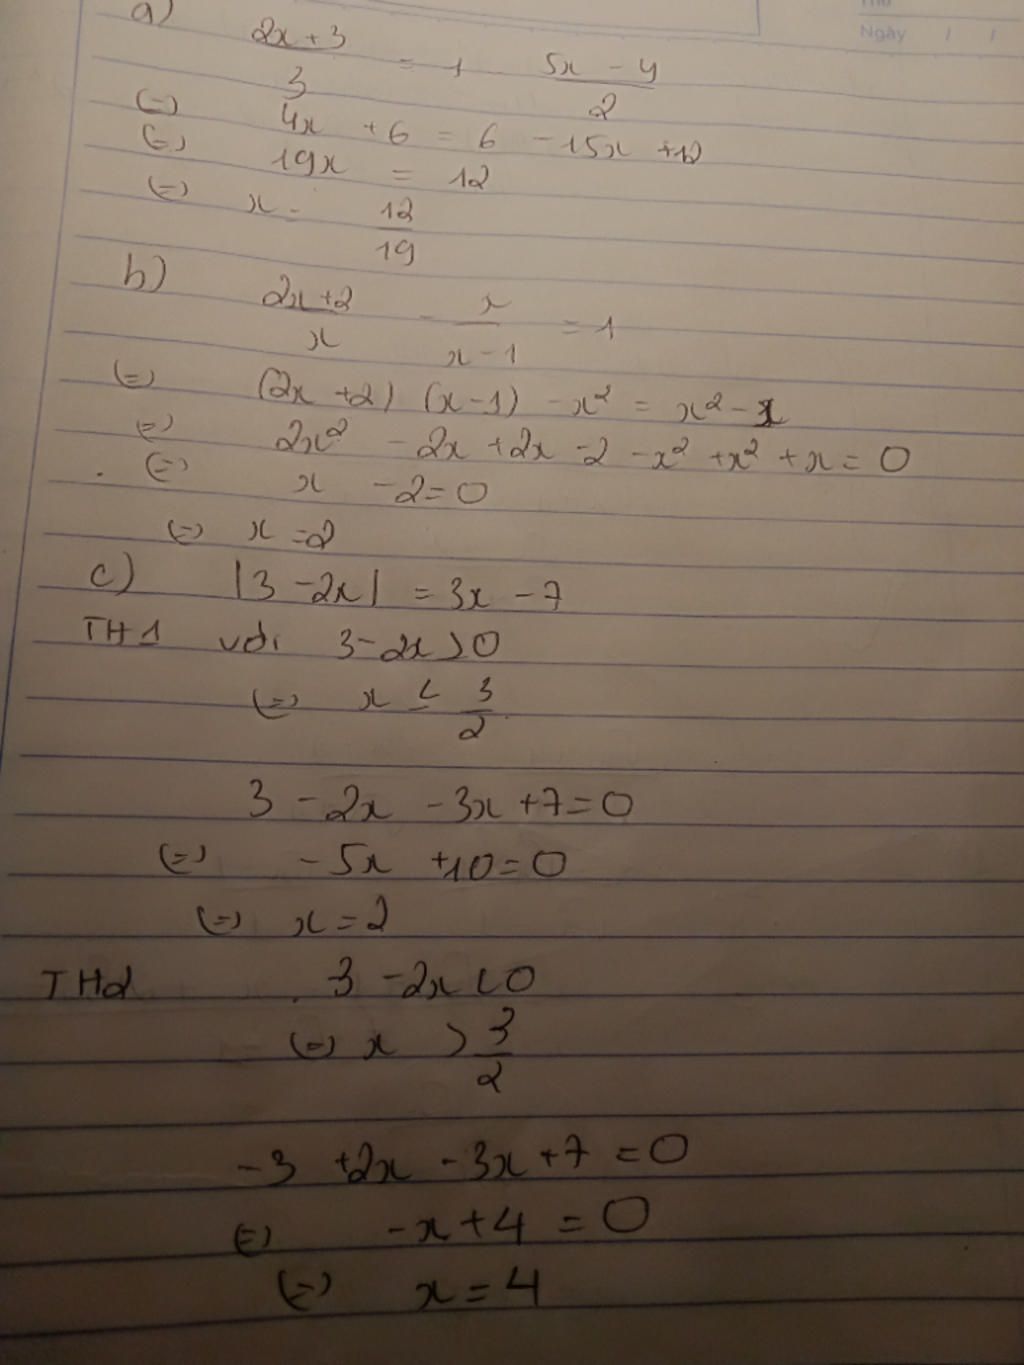 Thứ
Ngày / /
a) (2x + 3)/3 = 1 (5x - 4)/2
(=) 4x + 6 = 6 - 15x + 12
(=) 19x = 12
(=) x = 12/19
b) (2x + 2)/x - x/(x - 1) = 1
(=) (2x + 2) (x - 1) - x² = x² - x
(=) 2x² - 2x + 2x - 2 - x² + x² + x = 0
(=) x - 2 = 0
(=) x = 2
c) |3 - 2x| = 3x - 7
TH1 với 3 - 2x > 0
(=) x ≤ 3/2
3 - 2x - 3x + 7 = 0
(=) - 5x + 10 = 0
(=) x = 2
TH2 3 - 2x < 0
(=) x > 3/2
- 3 + 2x - 3x + 7 = 0
(=) - x + 4 = 0
(=) x = 4